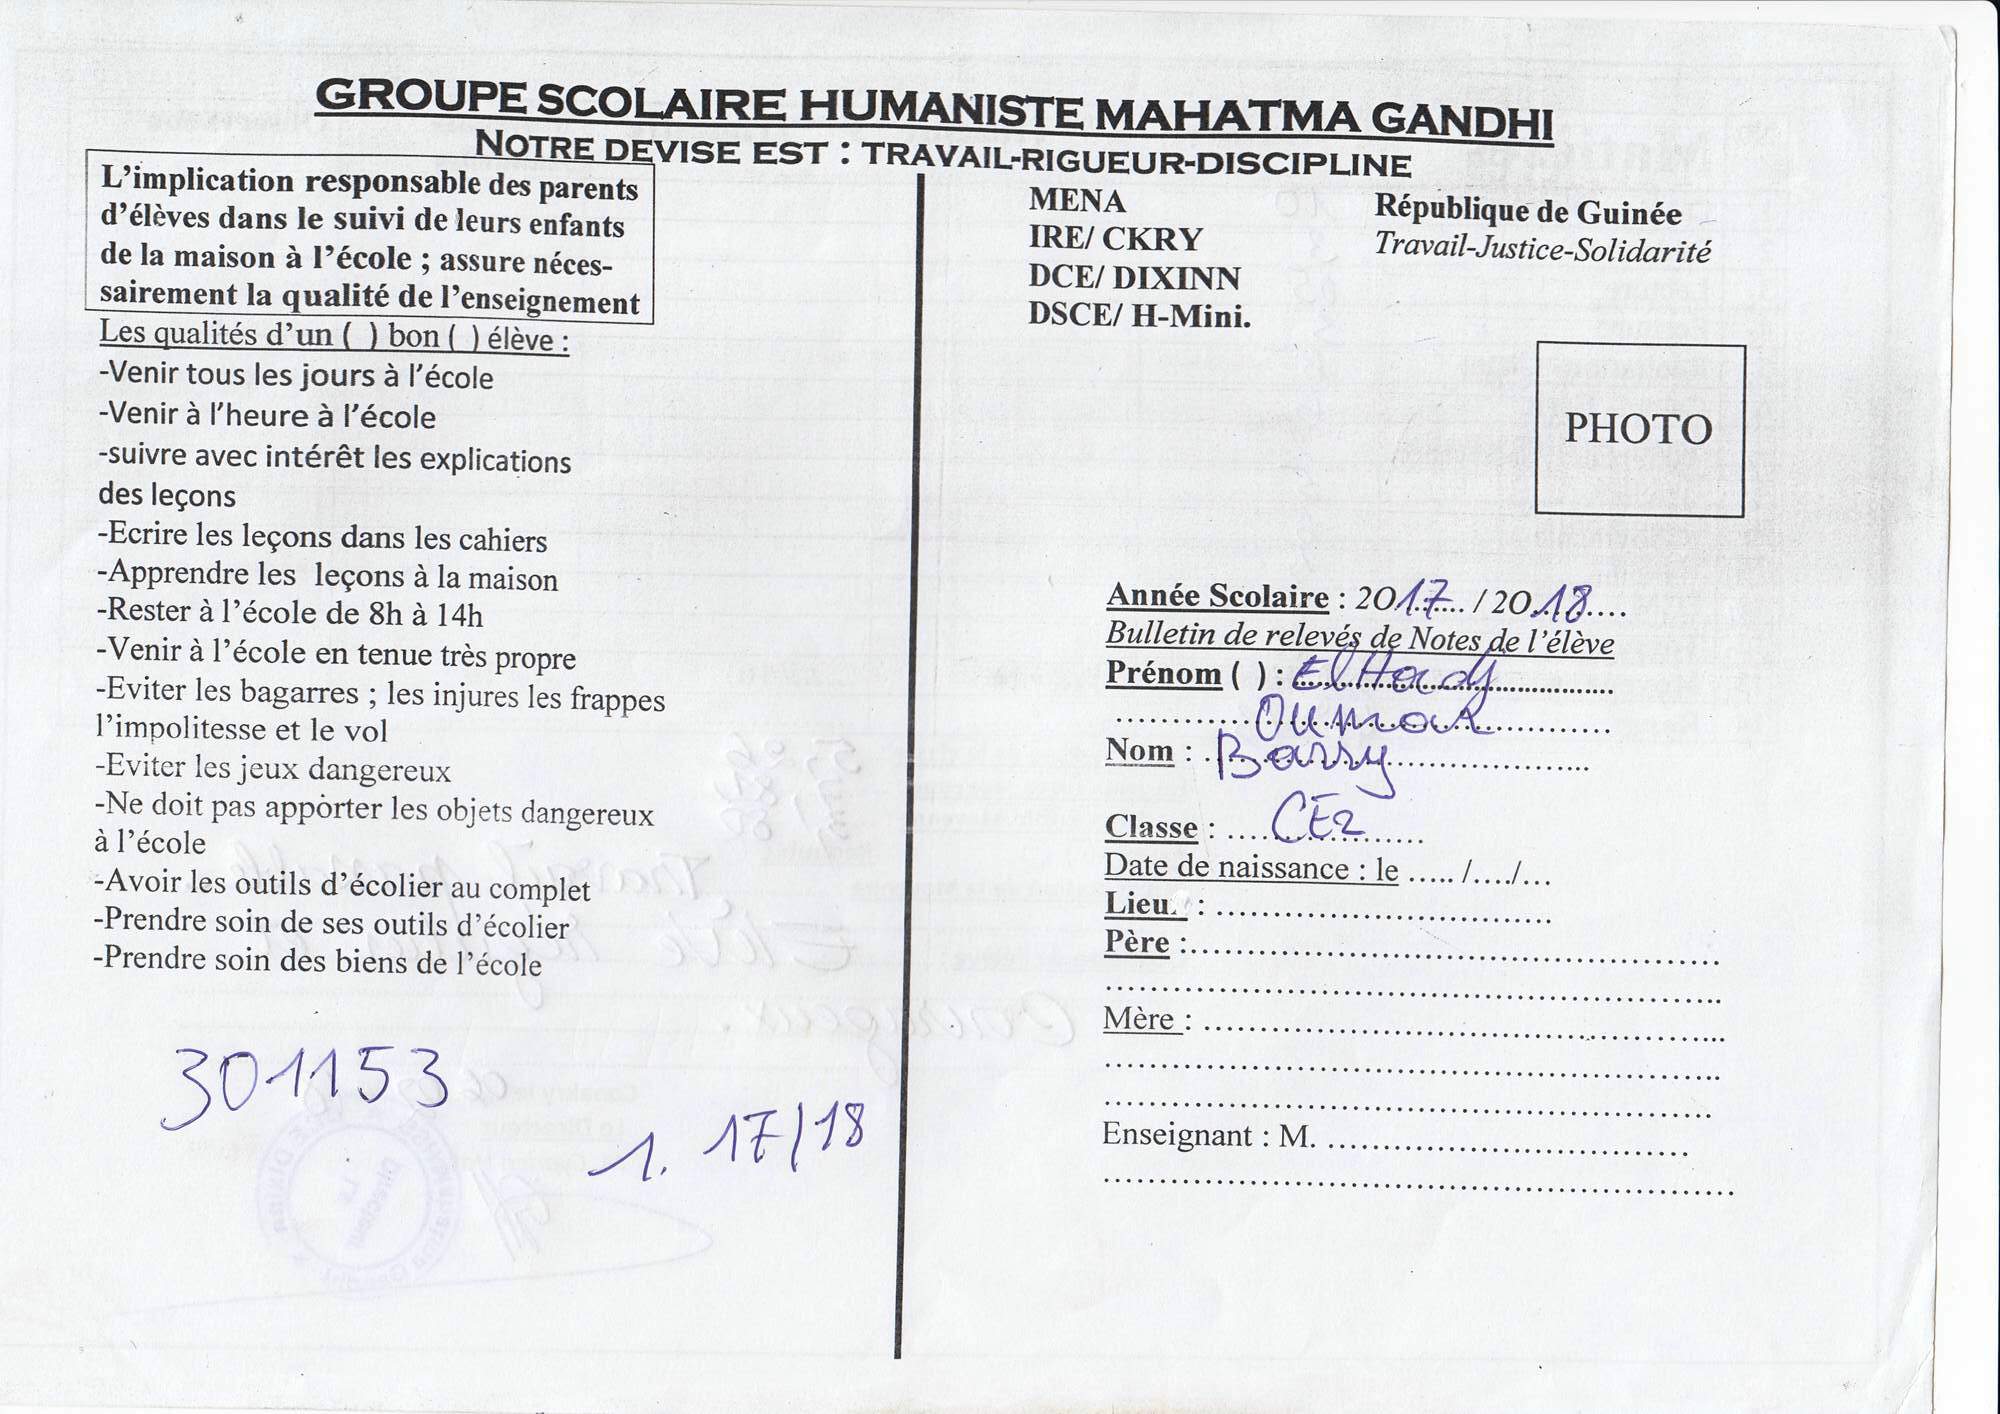 GROUPE SCOLAIRE HUMANISTE MAHATMA GANDHI
NOTRE DEVISE EST : TRAVAIL-RIGUEUR-DISCIPLINE
L'implication responsable des parents
d'élèves dans le suivi de leurs enfants
de la maison à l'école ; assure néces-
sairement la qualité de l'enseignement
Les qualités d'un ( ) bon ( ) élève :
-Venir tous les jours à l'école
-Venir à l'heure à l'école
-suivre avec intérêt les explications
des leçons
-Ecrire les leçons dans les cahiers
-Apprendre les leçons à la maison
-Rester à l'école de 8h à 14h
-Venir à l'école en tenue très propre
-Eviter les bagarres ; les injures les frappes
l'impolitesse et le vol
-Eviter les jeux dangereux
-Ne doit pas apporter les objets dangereux
à l'école
-Avoir les outils d'écolier au complet
-Prendre soin de ses outils d'écolier
-Prendre soin des biens de l'école
301153
1. 17/18
MENA
IRE/ CKRY
DCE/ DIXINN
DSCE/ H-Mini.
République de Guinée
Travail-Justice-Solidarité
PHOTO
Année Scolaire : 2017 / 2018
Bulletin de relevés de Notes de l'élève
Prénom ( ) : El Hadj
Oumar
Nom : Barry
Classe : CE2
Date de naissance : le ..... /..../...
Lieu. :
Père :
Mère :
Enseignant : M.